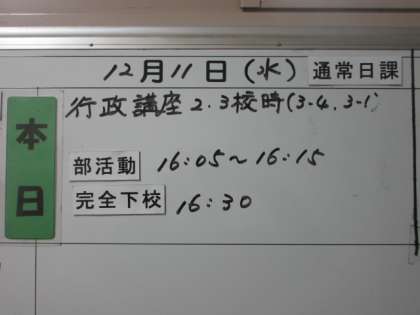 12月11日(水) 通常日課
本日
行政講座 2.3校時(3-4.3-1)
部活動 16:05~16:15
完全下校 16:30